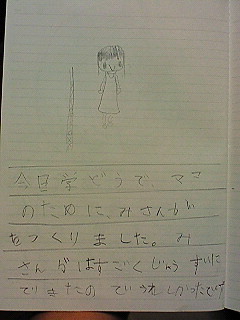 今日学どうで、ママ
のために、みさんが
をつくりました。み
さんがはすごくじょうずいた
できたのでうれしかったです